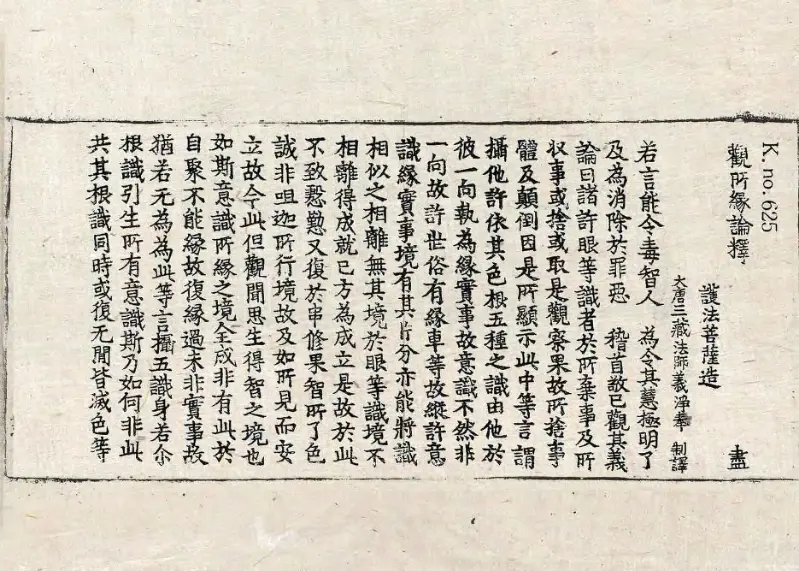 K. no. 625
觀所緣論釋 盡
護法菩薩造
大唐三藏法師義淨奉 制譯
若言能令毒智人 為令其慧極明了
及為消除於罪惡 稽首敬已觀其義
論曰諸許眼等識者於所棄事及所
収事或捨或取是觀察果故所捨事
體及顛倒因是所顯示此中等言謂
攝他許依其色根五種之識由他於
彼一向執為緣實事故意識不然非
一向故許世俗有緣車等故縱許意
識緣實事境有其片分亦能將識
相似之相離無其境於眼等識境不
相離得成就已方為成立是故於此
不致慇懃又復於串修果智所了色
誠非咀迦所行境故及如所見而安
立故今此但觀聞思生得智之境也
如斯意識所緣之境全成非有此於
自聚不能緣故復緣過未非實事故
猶若无為為此等言攝五識身若尒
根識引生所有意識斯乃如何非此
共其根識同時或復无間皆滅色等